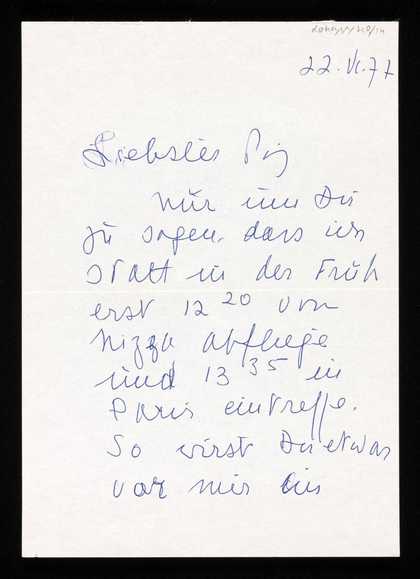 22.VI.77
Liebstes Pip
nur um Dir
zu sagen, dass ich
statt in der Früh
erst 12 20 von
Nizza abfliege
und 13 35 in
Paris eintreffe.
So wirst Du etwas
vor mir ein